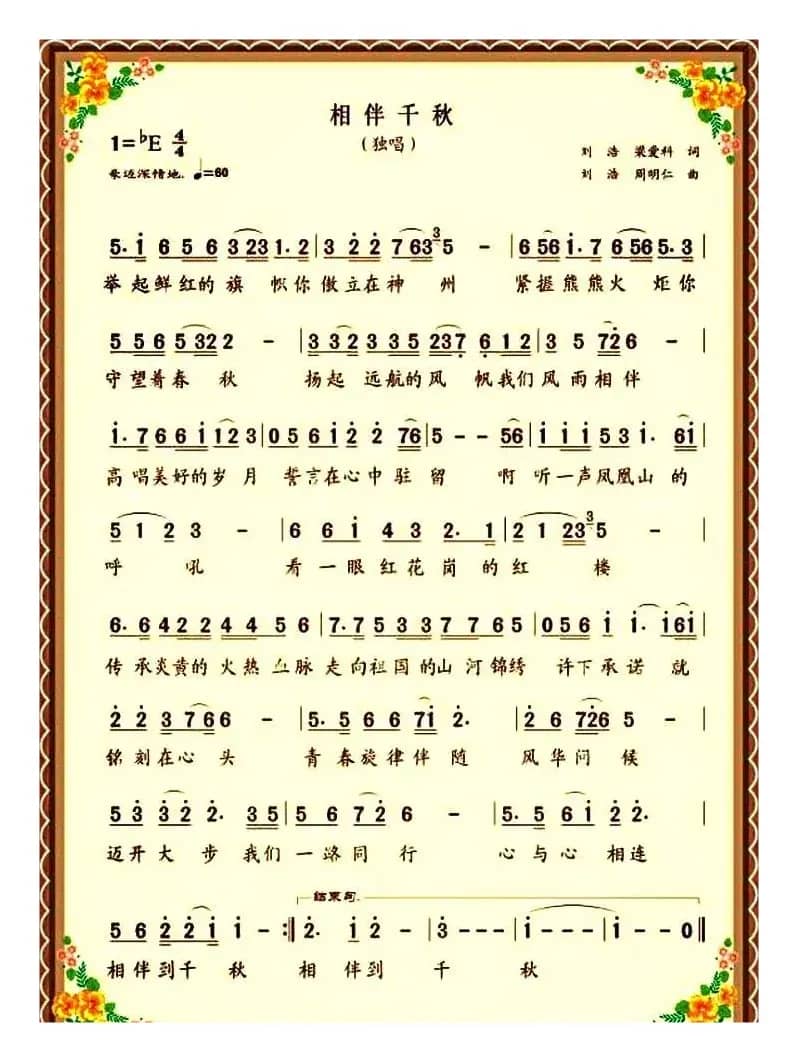 相伴千秋
（独唱）
1=♭E 4/4
刘浩 梁爱科 词
豪迈深情地. ♩=60
刘浩 周明仁 曲
5. 1 6 5 6 3 23 1. 2 | 3 2 2 7 63 3 5 - | 6 56 1. 7 6 56 5. 3 |
举起鲜红的旗 帜你傲立在神 州 紧握熊熊火 炬你
5 5 6 5 32 2 - | 3 3 2 3 3 5 23 7 6 1 2 | 3 5 7 2 6 - |
守望着春 秋 扬起 远航的风 帆我们风雨相伴
1. 7 6 6 1 1 2 3 | 0 5 6 1 2 2 76 | 5 - - 56 | 1 1 1 5 3 1. 61 |
高唱美好的岁月 誓言在心中驻留 啊听一声凤凰山的
5 1 2 3 - | 6 6 1 4 3 2. 1 | 2 1 23 3 5 - |
呼 吼 看一眼红花岗的红 楼
6. 6 4 2 2 4 4 5 6 | 7. 7 5 3 3 7 7 6 5 | 0 5 6 1 1. 1 61 |
传承炎黄的火热血脉走向祖国的山河锦绣 许下承诺就
2 2 3 76 6 - | 5. 5 6 6 71 2. | 2 6 7 26 5 - |
铭刻在心头 青春旋律伴随 风华问候
5 3 3 2 2. 3 5 | 5 6 7 2 6 - | 5. 5 6 1 2 2. |
迈开大步我们一路同行 心与心相连
结束句.
5 6 2 2 1 1 - :‖ 2. 1 2 - | 3 - - - | 1 - - - | 1 - - 0 ‖
相伴到千 秋 相 伴到 千 秋